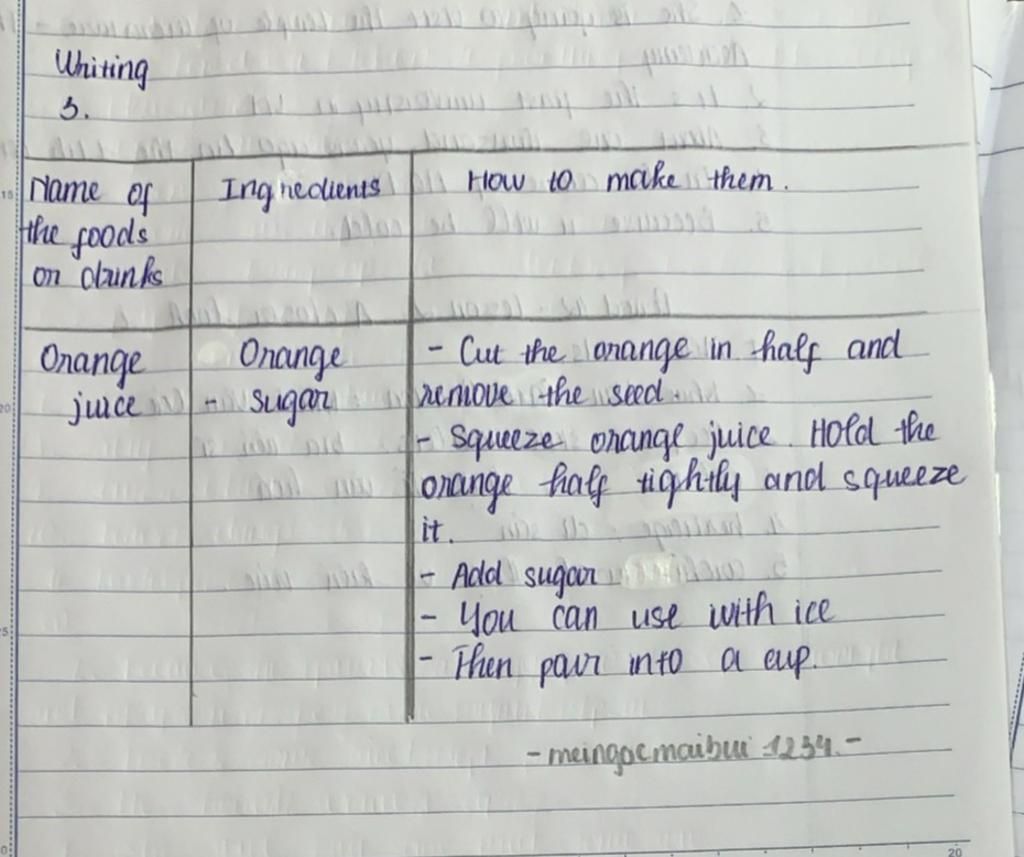 Writing
3.
Name of
the foods
or drinks
Ingredients
How to make them.
Orange
juice
Orange
- sugar
- Cut the orange in half and
remove the seed.
- Squeeze orange juice. Hold the
orange half tightly and squeeze
it.
- Add sugar
- You can use with ice
- Then pour into a cup.
- meingocmaibui 1234.-
15
20
20